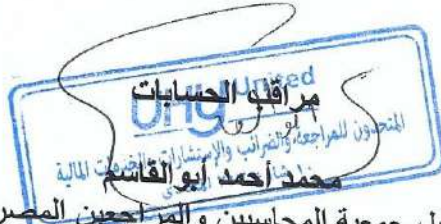 مراقبو الحسابات
UHY United
المتحدون للمراجعة والضرائب والإستشارات والخدمات المالية
محمد أحمد أبو القاسم
جمعية المحاسبين والمراجعين المصر